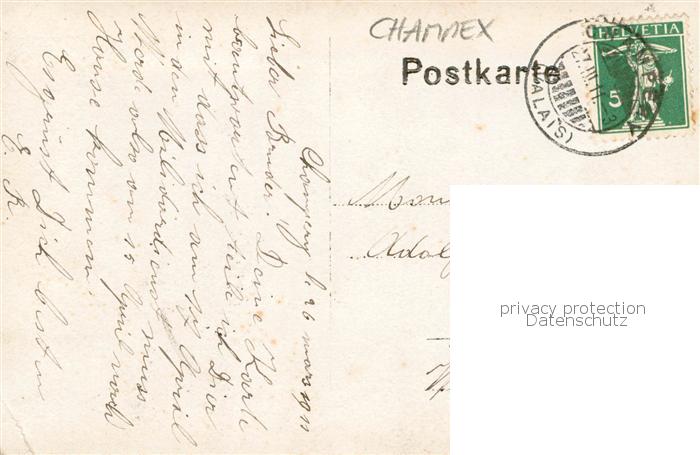 CHAMPEX
Postkarte
HELVETIA
5
CHAMPEX
27.III.11
(VALAIS)
Champery d. 26 mars 1911
Lieber Bruder. Deine Karte
beantwortend teile ich Dir
mit dass ich am 17 April
in den Militärdienst muss
Werde also am 15 April nach
Hause kommen
Es grüsst Dich bestens
E. R.
Adol
privacy protection
Datenschutz